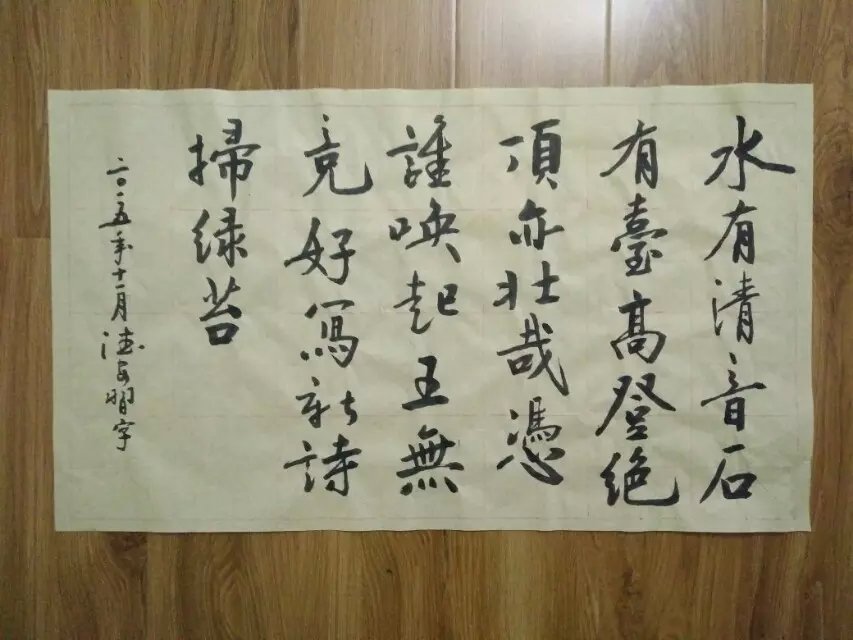 水有清音石
有臺高登绝
頂亦壮哉憑
誰唤起王無
竞好寫新詩
掃绿苔
二〇一五年十一月德安